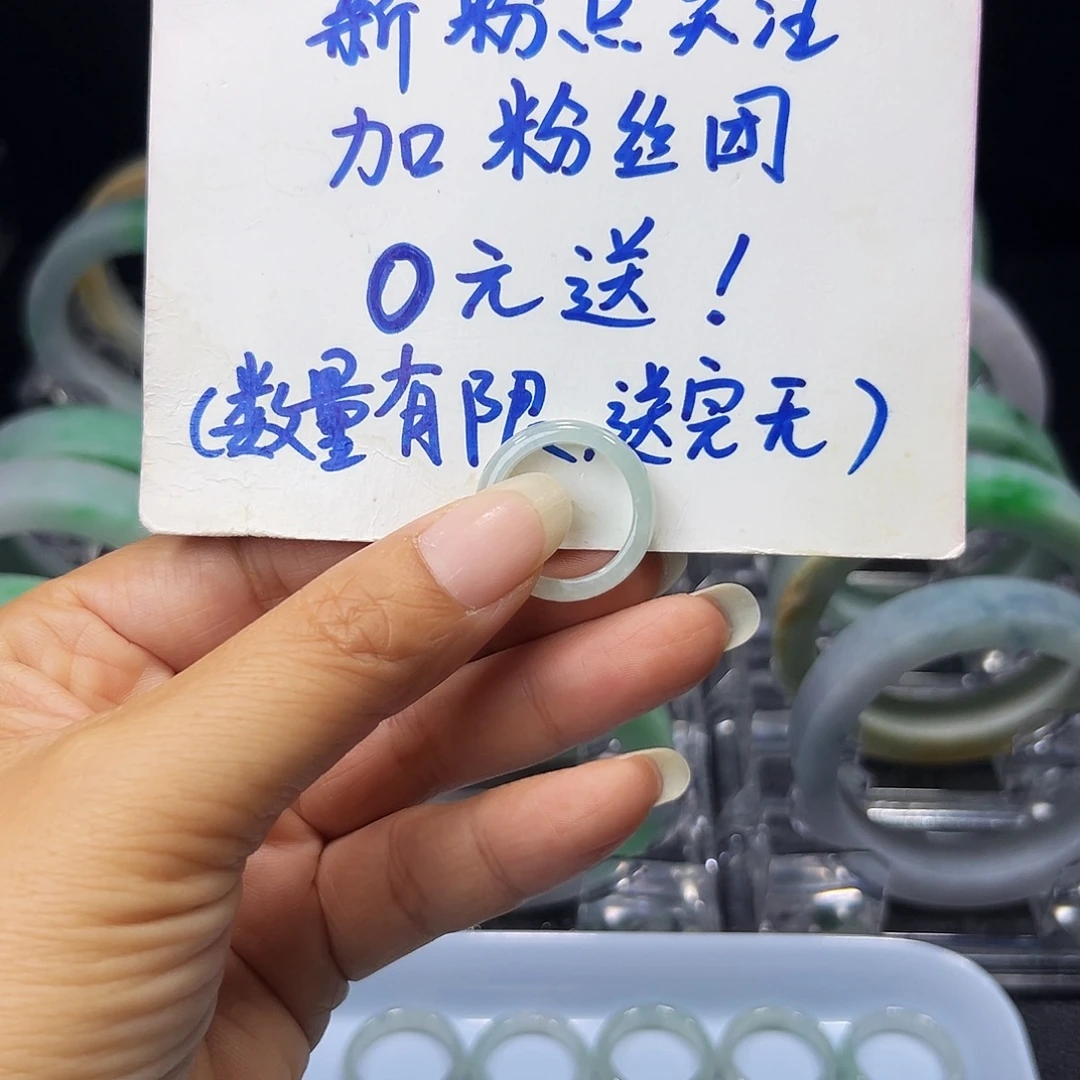 新粉点关注
加粉丝团
0元送！
（数量有限，送完无）